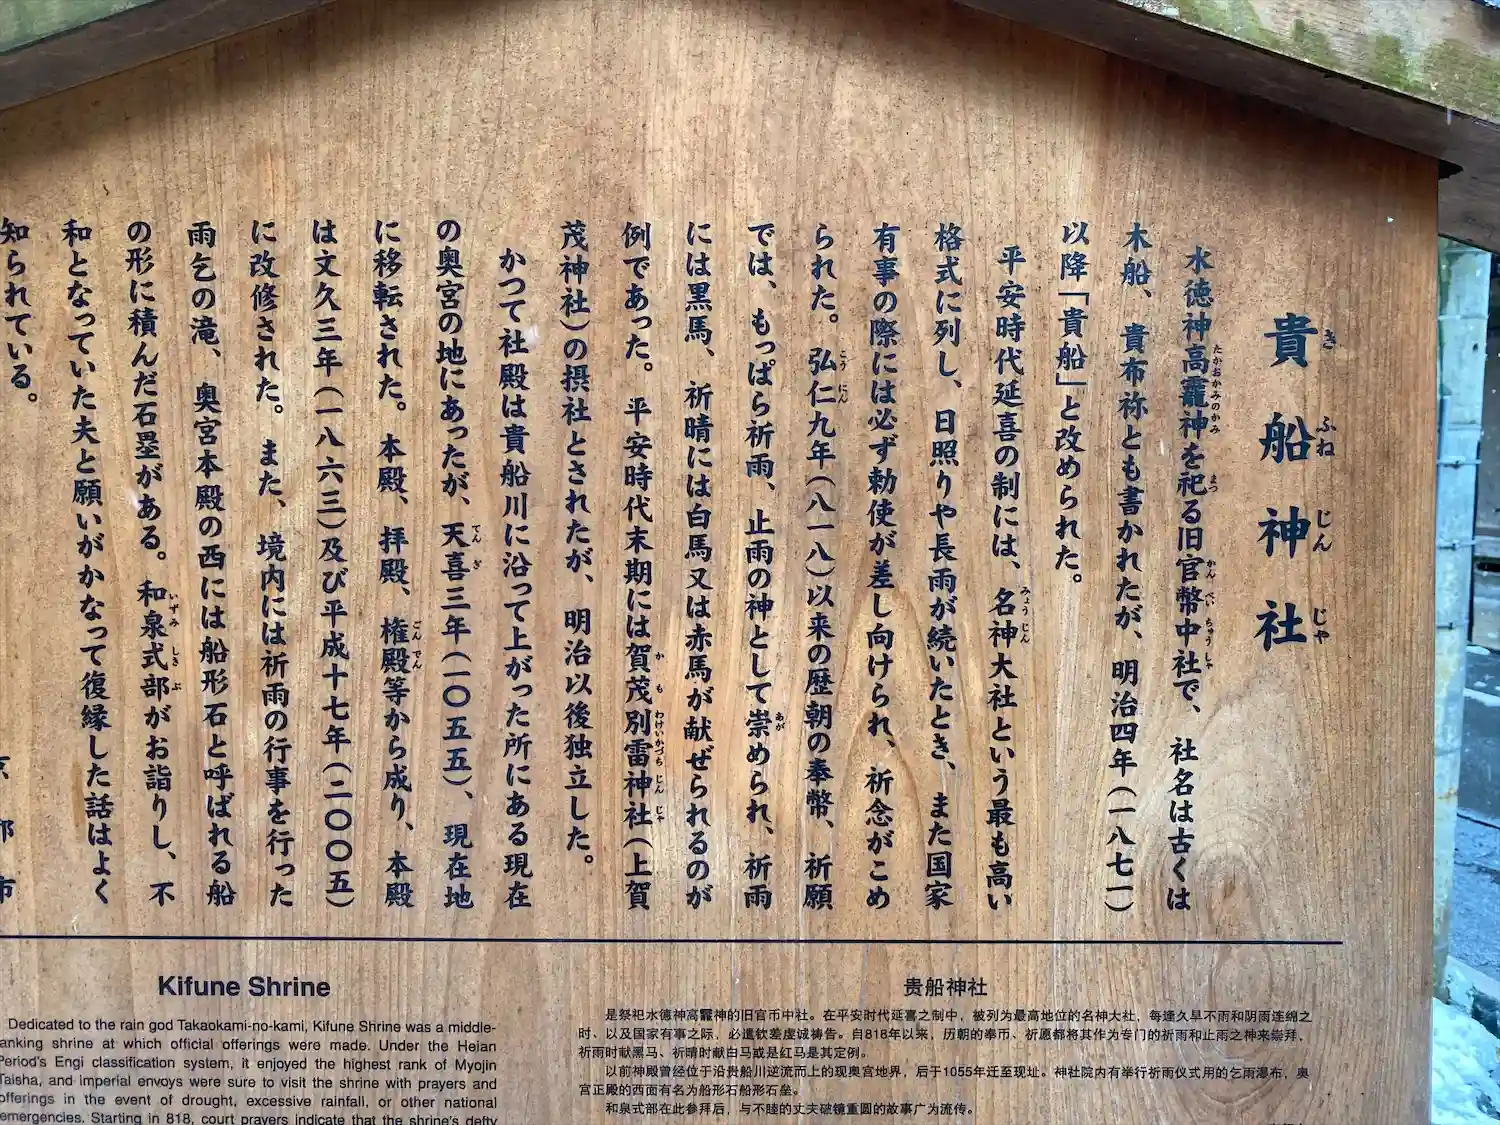 貴船神社
きふねじんじゃ
水徳神高龗神を祀る旧官幣中社で、社名は古くは
たかおかみのかみ まつ かんぺいちゅうしゃ
木船、貴布祢とも書かれたが、明治四年(一八七一)
以降「貴船」と改められた。
平安時代延喜の制には、名神大社という最も高い
みょうじん
格式に列し、日照りや長雨が続いたとき、また国家
有事の際には必ず勅使が差し向けられ、祈念がこめ
られた。弘仁九年(八一八)以来の歴朝の奉幣、祈願
こうにん
では、もっぱら祈雨、止雨の神として崇められ、祈雨
あが
には黒馬、祈晴には白馬又は赤馬が献ぜられるのが
例であった。平安時代末期には賀茂別雷神社(上賀
かもわけいかづちじんじゃ
茂神社)の摂社とされたが、明治以後独立した。
かつて社殿は貴船川に沿って上がった所にある現在
の奥宮の地にあったが、天喜三年(一〇五五)、現在地
てんぎ
に移転された。本殿、拝殿、権殿等から成り、本殿
ごんでん
は文久三年(一八六三)及び平成十七年(二〇〇五)
に改修された。また、境内には祈雨の行事を行った
雨乞の滝、奥宮本殿の西には船形石と呼ばれる船
の形に積んだ石塁がある。和泉式部がお詣りし、不
いずみしきぶ
和となっていた夫と願いがかなって復縁した話はよく
知られている。
京都市
Kifune Shrine
Dedicated to the rain god Takaokami-no-kami, Kifune Shrine was a middle-
anking shrine at which official offerings were made. Under the Heian
Period's Engi classification system, it enjoyed the highest rank of Myojin
Taisha, and imperial envoys were sure to visit the shrine with prayers and
offerings in the event of drought, excessive rainfall, or other national
emergencies. Starting in 818, court prayers indicate that the shrine's deity
贵船神社
是祭祀水德神高龗神的旧官币中社。在平安时代延喜之制中，被列为最高地位的名神大社，每逢久旱不雨和阴雨连绵之
时、以及国家有事之际，必遣钦差虔诚祷告。自818年以来，历朝的奉币、祈愿都将其作为专门的祈雨和止雨之神来崇拜，
祈雨时献黑马、祈晴时献白马或是红马是其定例。
以前神殿曾经位于沿贵船川逆流而上的现奥宫地界，后于1055年迁至现址。神社院内有举行祈雨仪式用的乞雨瀑布，奥
宫正殿的西面有名为船形石船形石垒。
和泉式部在此参拜后，与不睦的丈夫破镜重圆的故事广为流传。